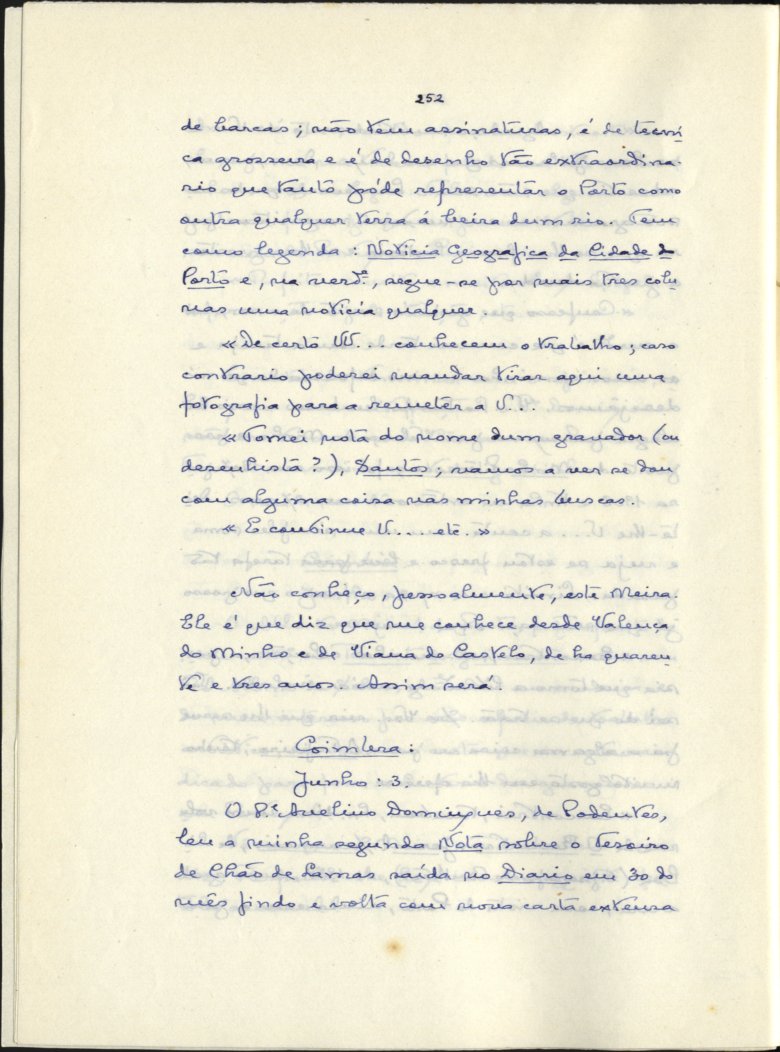 252
de barcas; não tem assinaturas, é de tecni
ca grosseira e é de desenho tão extraordina-
rio que tanto póde representar o Porto como
outra qualquer terra á beira dum rio. Tem
como legenda: Noticia Geografica da Cidade do
Porto e, na verd.e, segue-se por mais tres colu-
nas uma noticia qualquer.
«De certo VV... conhecem o trabalho; caso
contrario poderei mandar tirar aqui uma
fotografia para a remeter a V...
«Tomei nota do nome dum gravador (ou
desenhista?), Santos; vamos a ver se dou
com alguma coisa nas minhas buscas.
«E continue V.... etc.»
Não conheço, pessoalmente, este Meira.
Ele é que diz que me conhece desde Valença
do Minho e de Viana do Castelo, de ha quaren-
te e tres anos. Assim será.
Coimbra:
Junho: 3.
O P.e Avelino Domingues, de Podentes,
leu a minha segunda Nota sobre o Tesoiro
de Chão de Lamas saída no Diario em 30 do
mês findo e volta com nova carta extensa